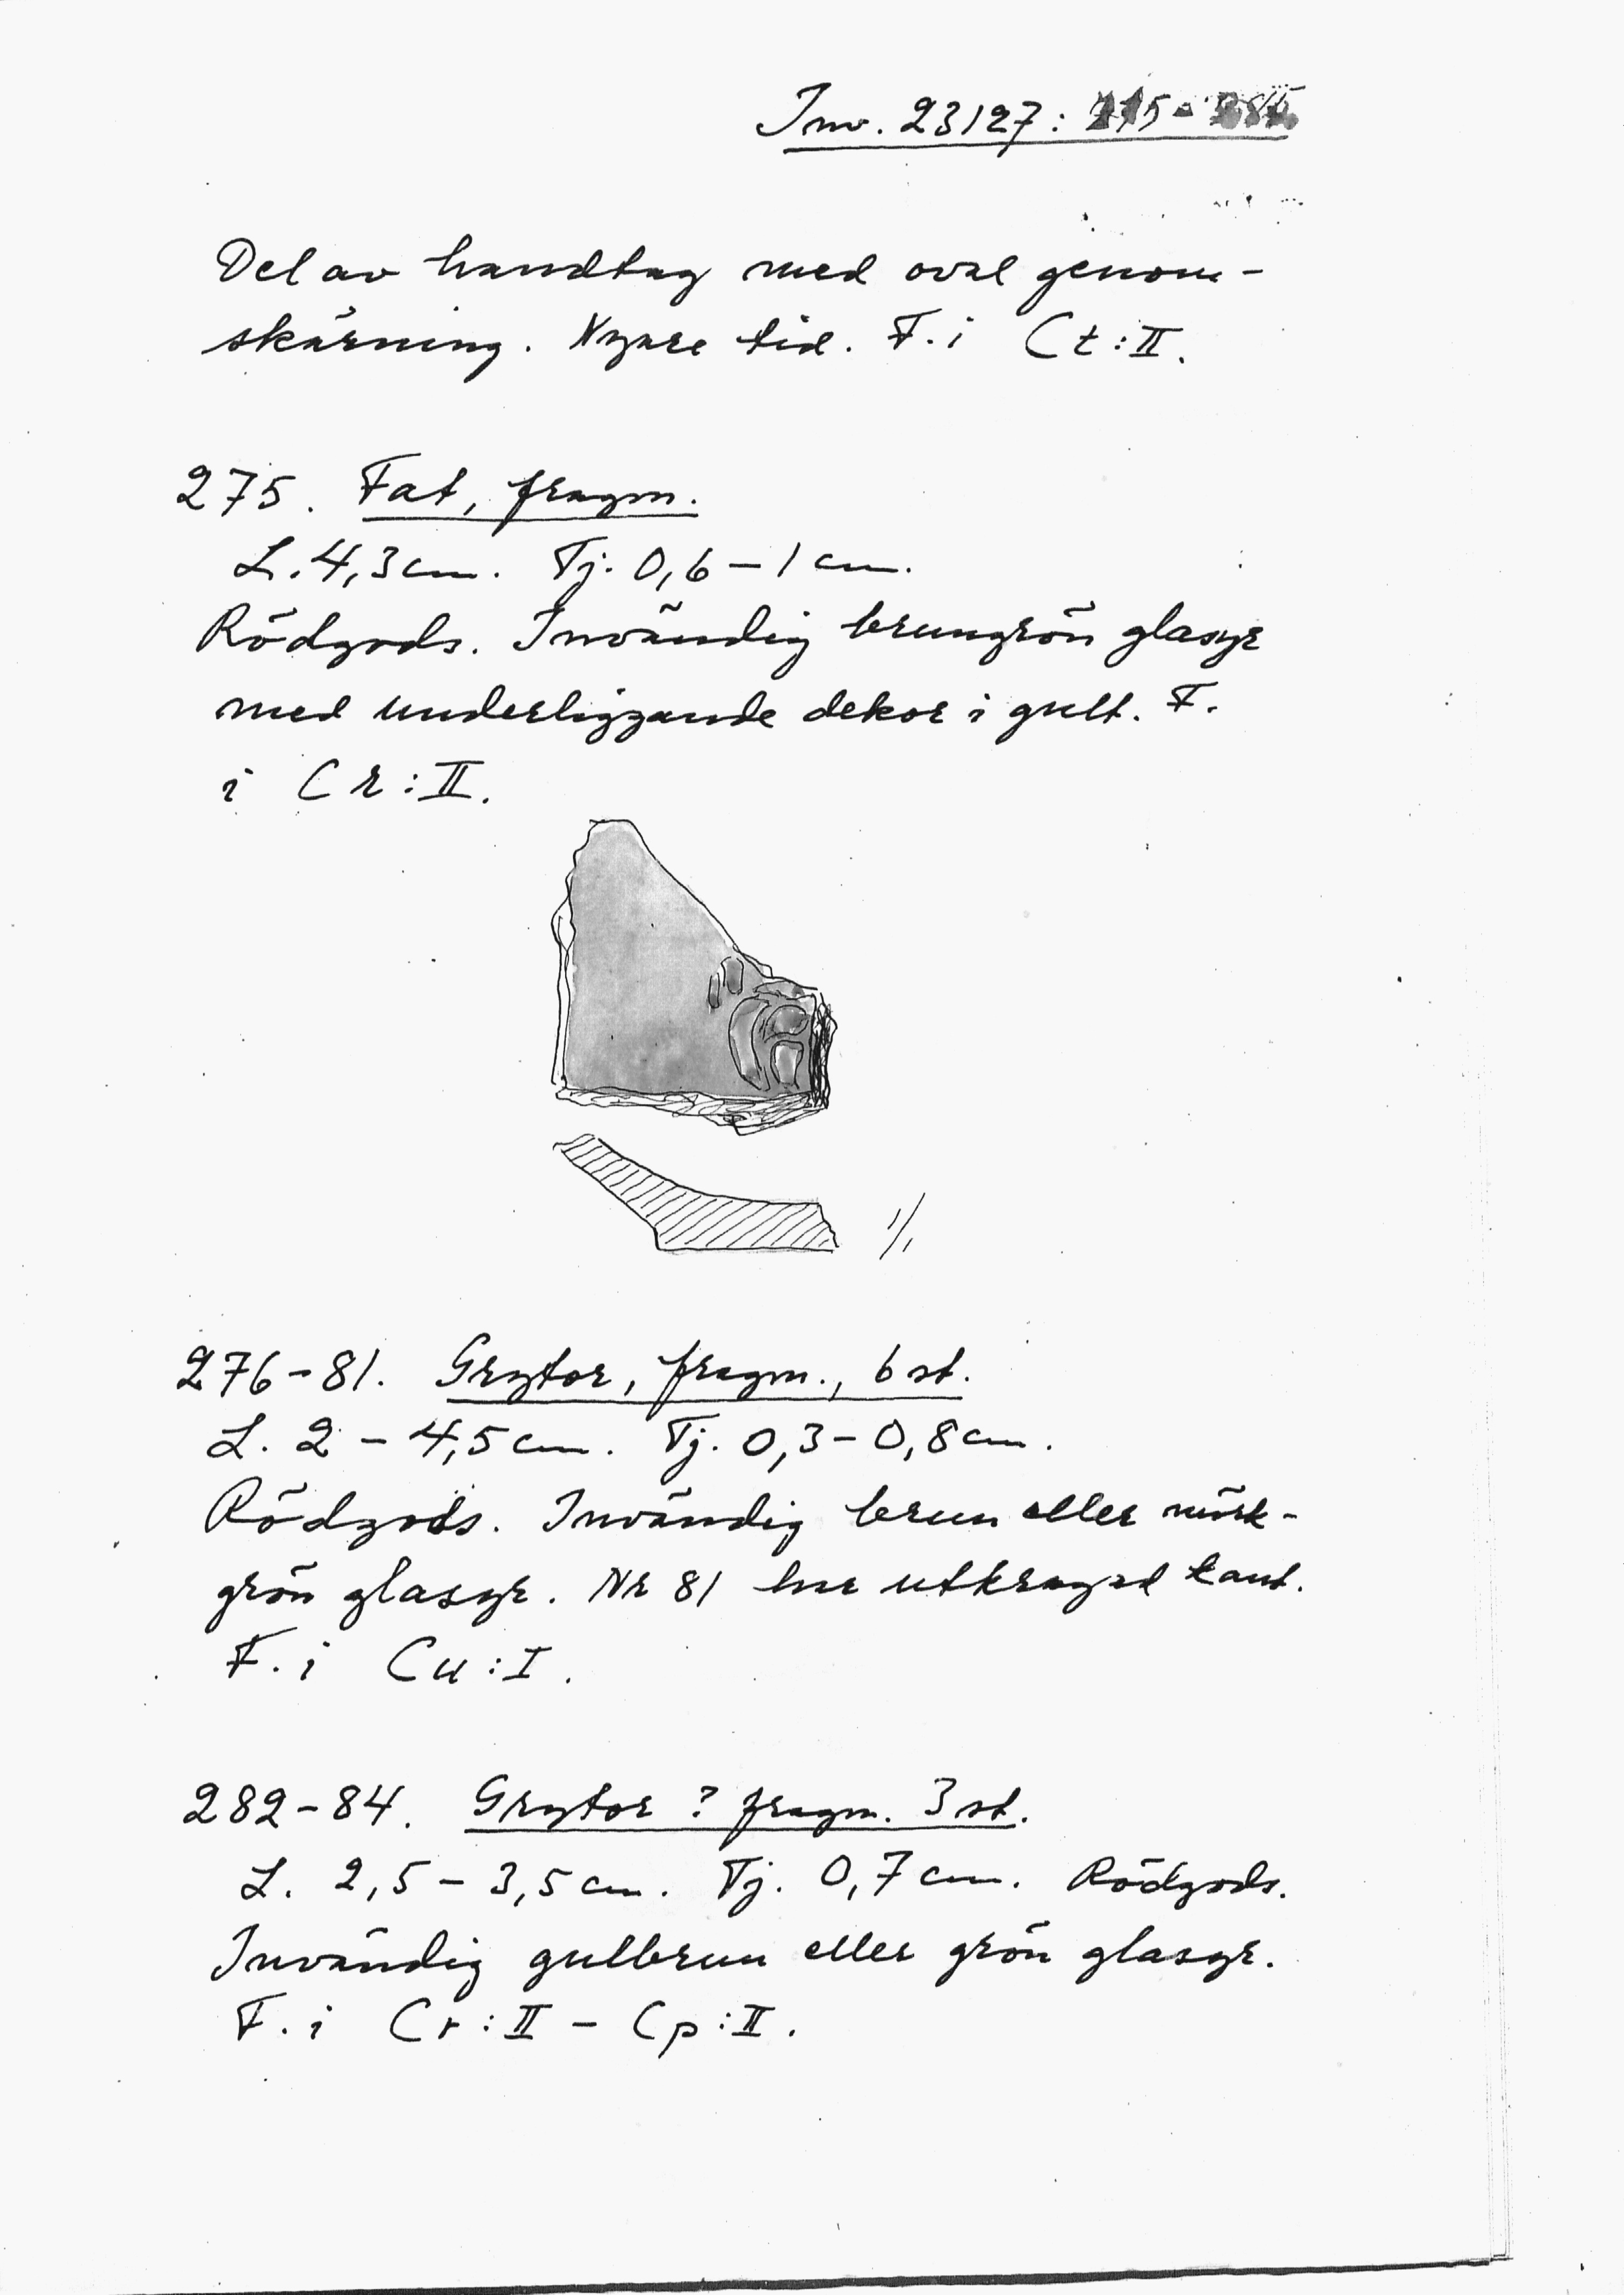 Inv. 23127:
Del av handtag med oval genom-
skärning. Nyare tid. F. i Ct:II.
275. Fat, fragm.
L. 4,3 cm. Tj. 0,6 – 1 cm.
Rödgods. Invändig brungrön glasyr
med underliggande dekor i gult. F.
i Cr:II.
1/1
276-81. Grytor, fragm., 6 st.
L. 2 – 4,5 cm. Tj. 0,3 – 0,8 cm.
Rödgods. Invändig brun eller mörk-
grön glasyr. Nr 81 har utkragad kant.
F. i Cu:I.
282-84. Grytor? fragm. 3 st.
L. 2,5 – 3,5 cm. Tj. 0,7 cm. Rödgods.
Invändig gulbrun eller grön glasyr.
F. i Cr:II – Cp:II.